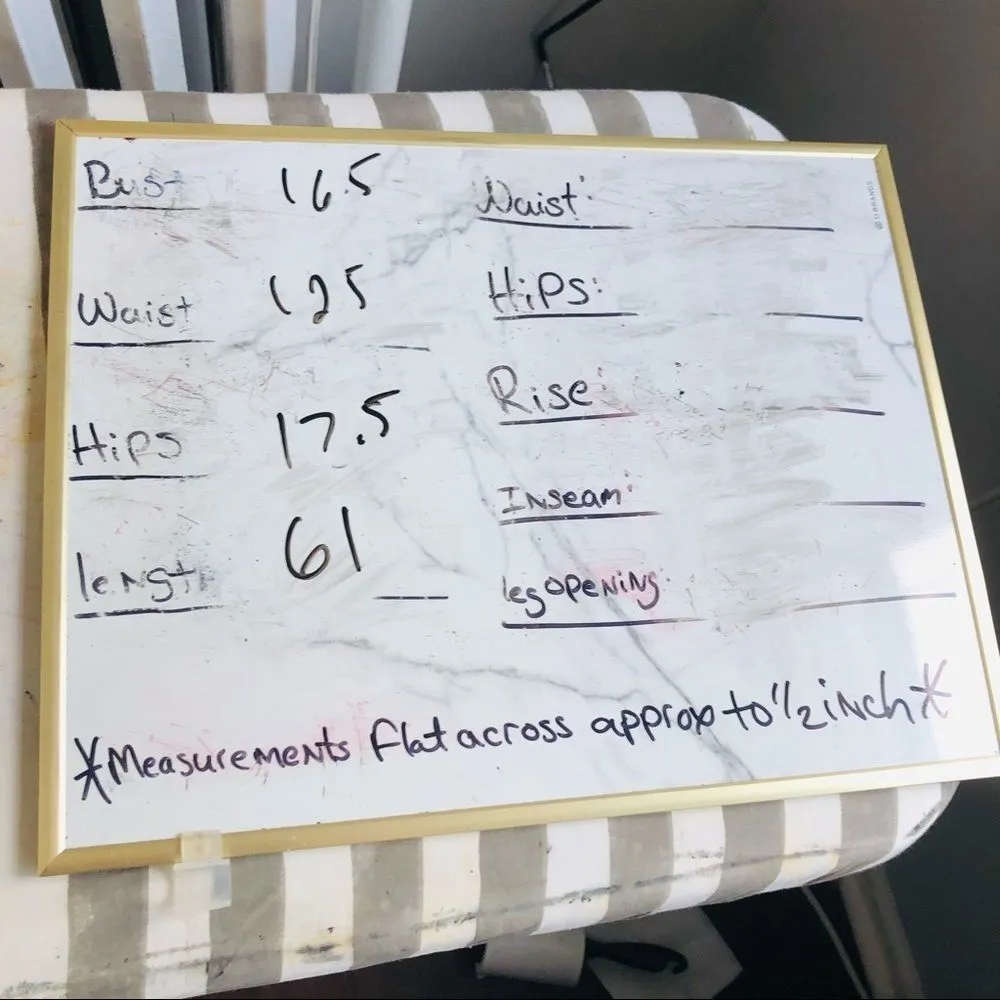 Bust 16.5
Waist 125
Hips 17.5
length 61
Waist:
Hips:
Rise:
Inseam:
leg opening:
*Measurements flat across approx to 1/2 inch*
U BRANDS